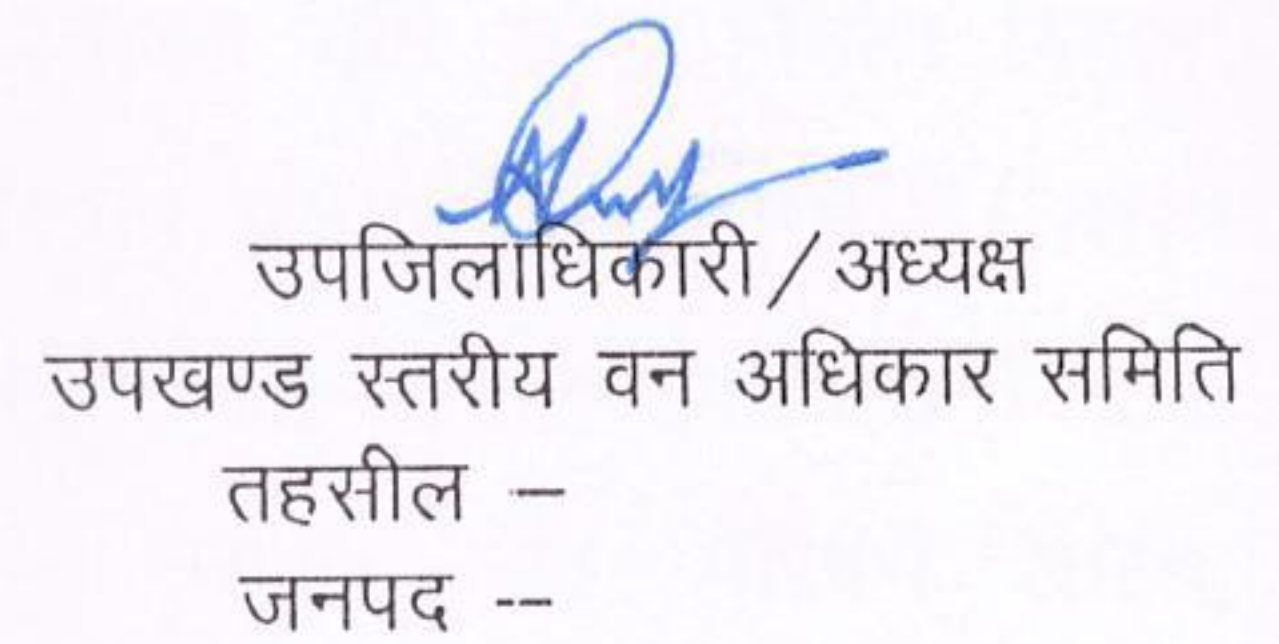 उपजिलाधिकारी / अध्यक्ष
उपखण्ड स्तरीय वन अधिकार समिति
तहसील –
जनपद --